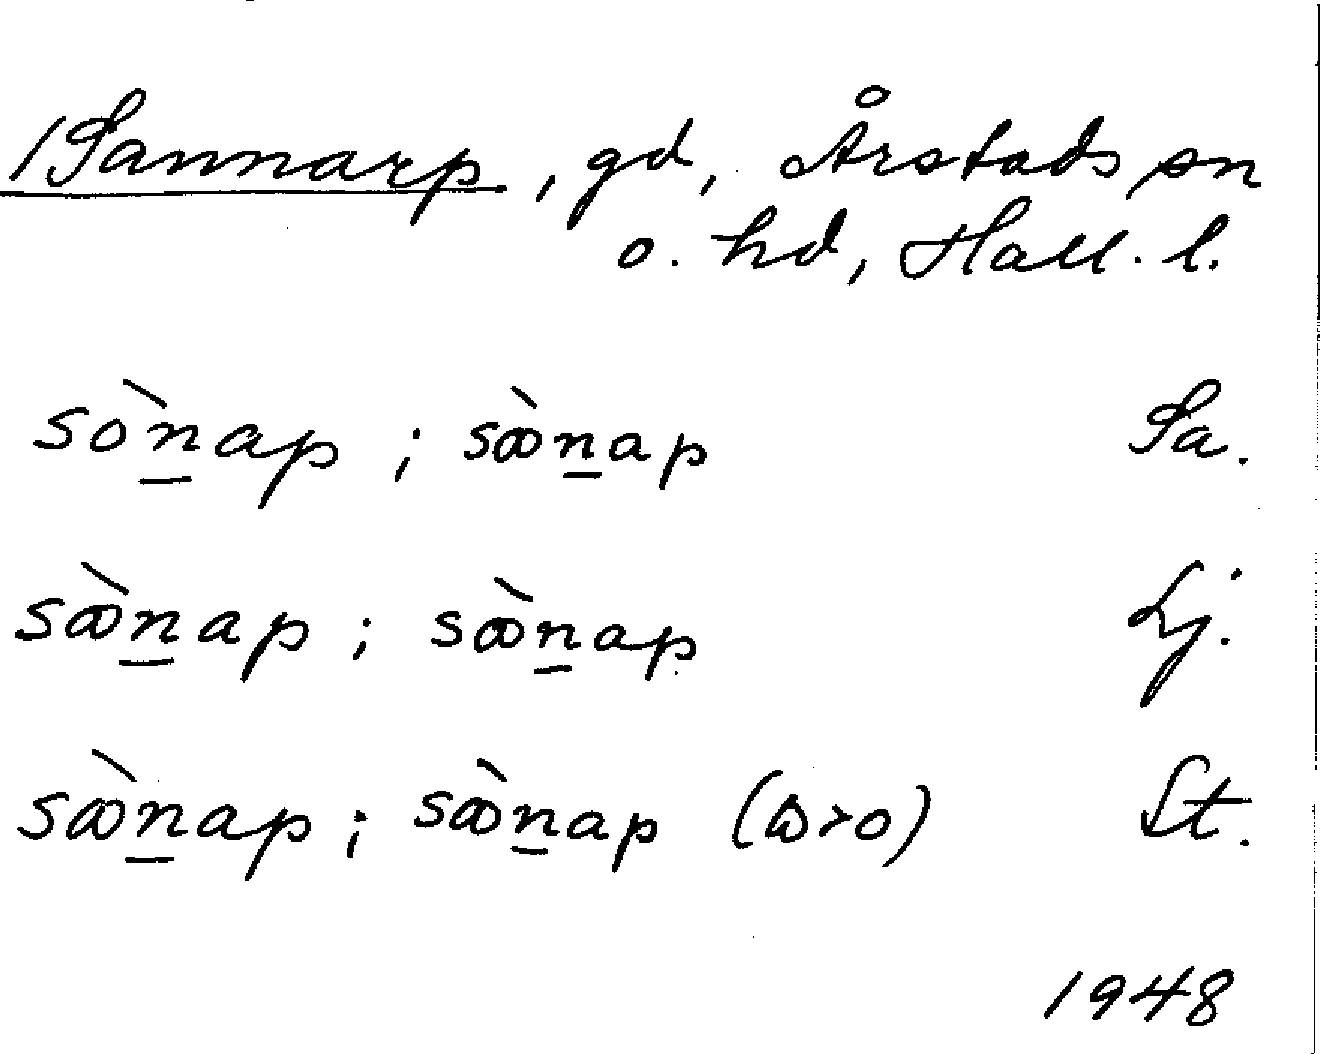 /Sannarp, gd, Årstads sn
o. hd, Hall. l.
sòn̲ap ; sꝏ̀n̲ap Sa.
sꝏ̀n̲ap ; sꝏ̀n̲ap Lj.
sꝏ̀n̲ap ; sꝏ̀n̲ap (ꝏ>o) St.
1948